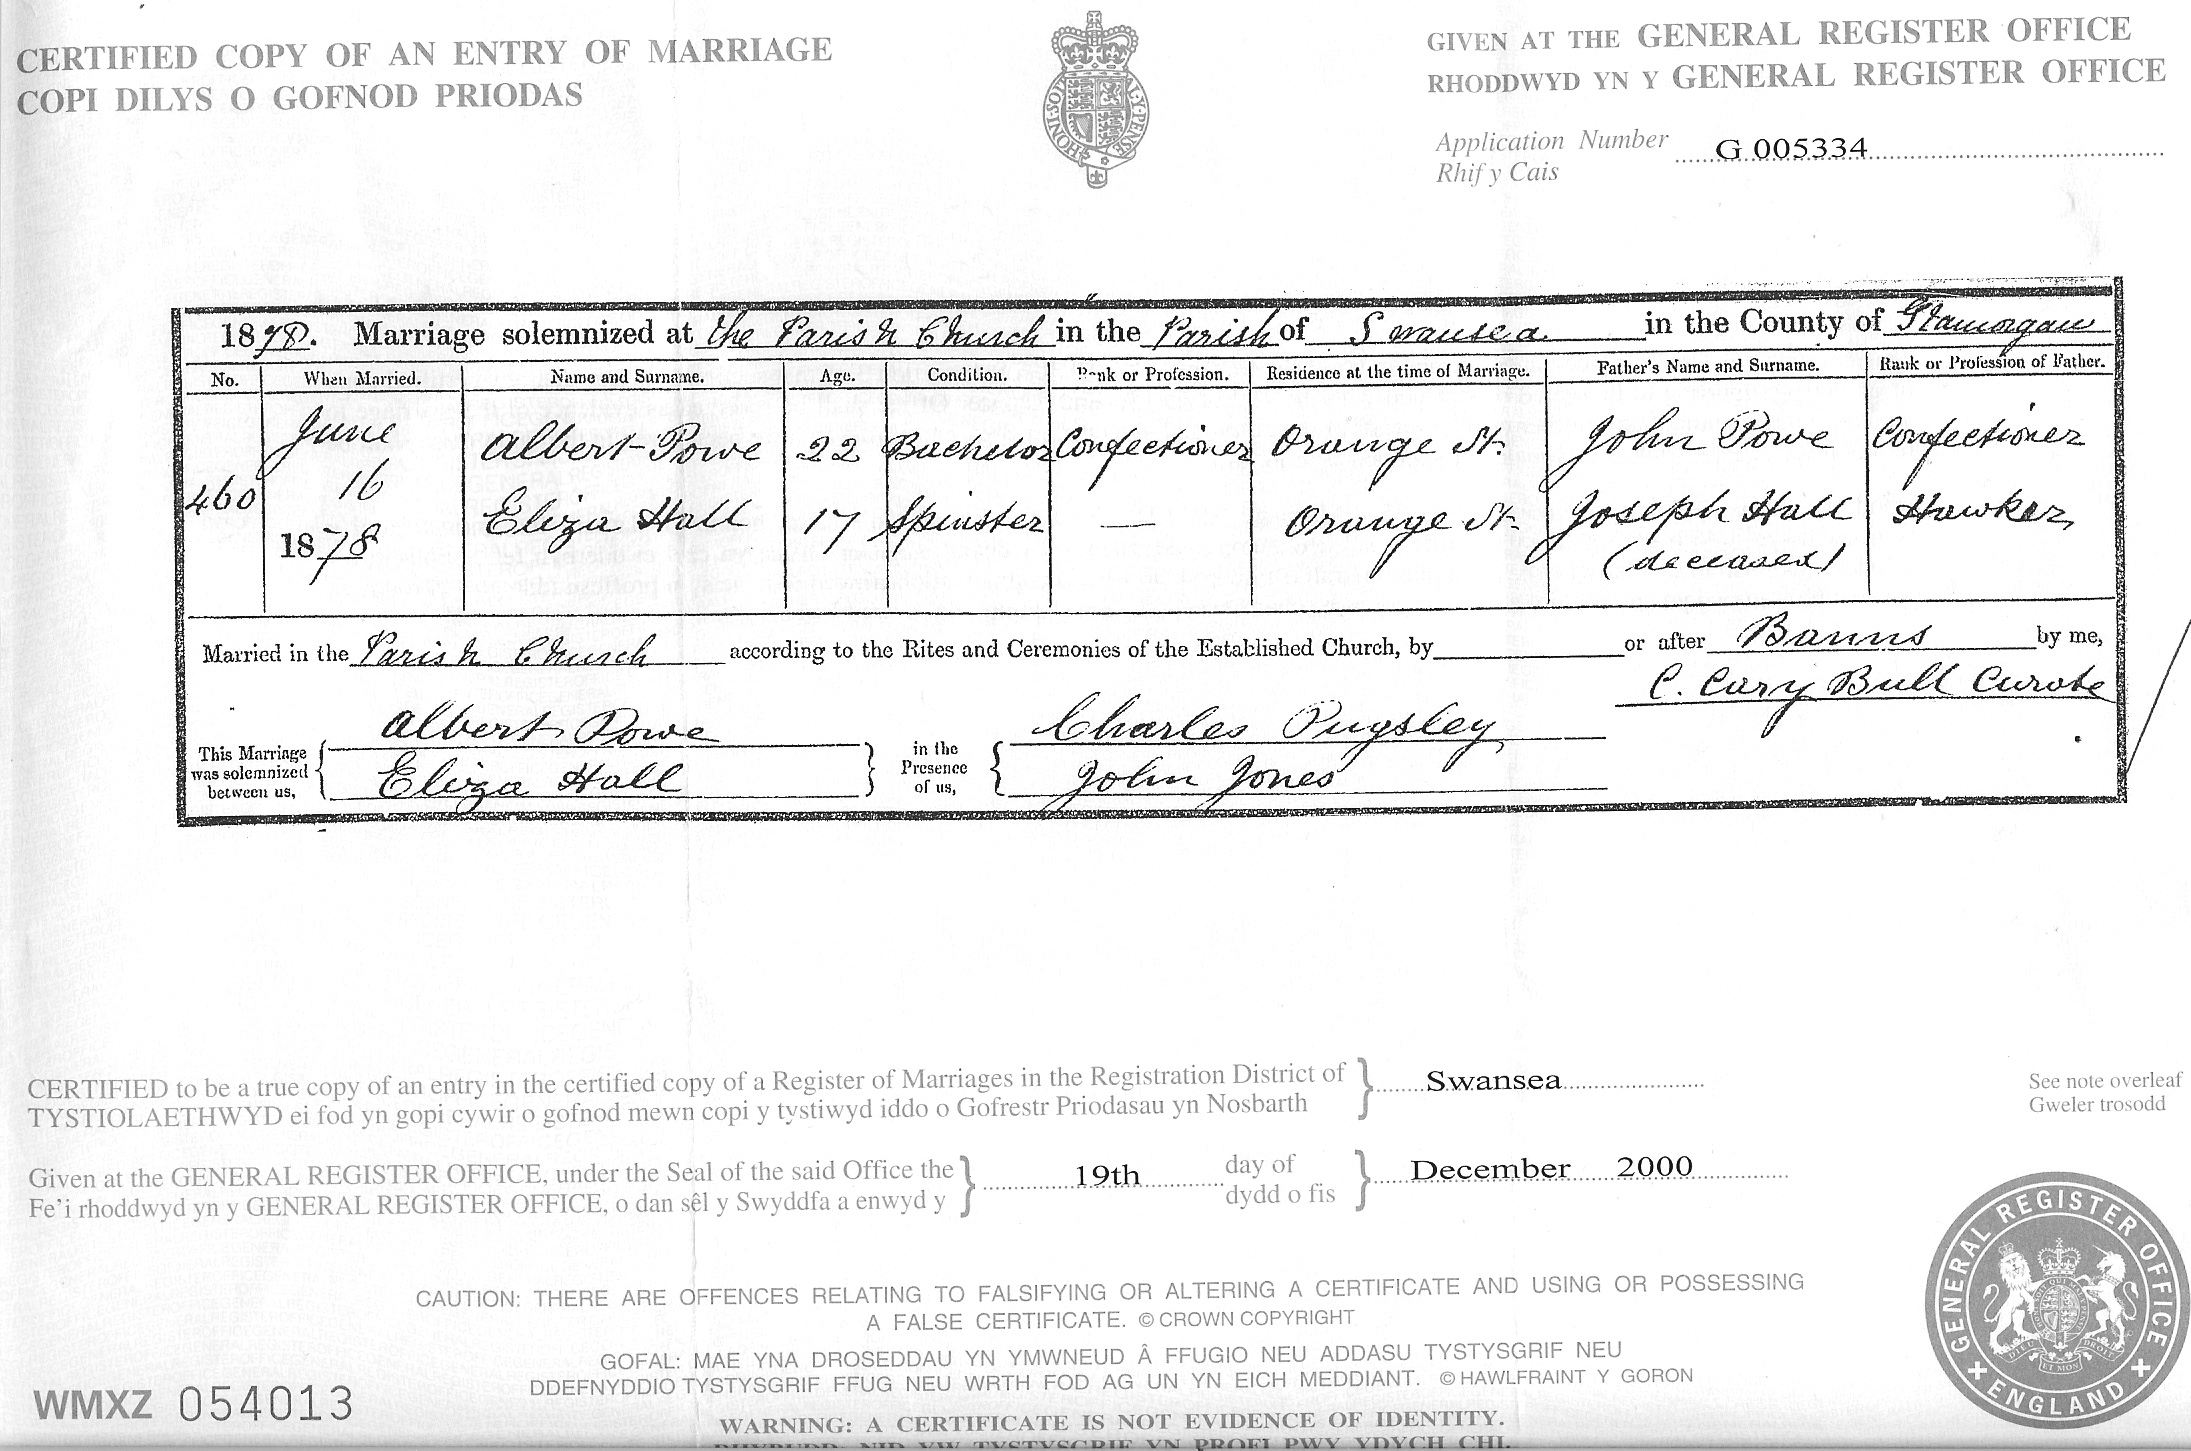 CERTIFIED COPY OF AN ENTRY OF MARRIAGE
COPI DILYS O GOFNOD PRIODAS
GIVEN AT THE GENERAL REGISTER OFFICE
RHODDWYD YN Y GENERAL REGISTER OFFICE
Application Number G 005334
Rhif y Cais
1878. Marriage solemnized at the Parish Church in the Parish of Swansea in the County of Glamorgan
No. When Married. Name and Surname. Age. Condition. Rank or Profession. Residence at the time of Marriage. Father's Name and Surname. Rank or Profession of Father.
460 June 16 1878
Albert Powe 22 Bachelor Confectioner Orange St. John Powe Confectioner
Eliza Hall 17 Spinster — Orange St. Joseph Hall (deceased) Hawker
Married in the Parish Church according to the Rites and Ceremonies of the Established Church, by or after Banns by me,
C. Cary Bull Curate
This Marriage was solemnized between us, Albert Powe Eliza Hall
in the Presence of us, Charles Pugsley John Jones
CERTIFIED to be a true copy of an entry in the certified copy of a Register of Marriages in the Registration District of Swansea
TYSTIOLAETHWYD ei fod yn gopi cywir o gofnod mewn copi y tystiwyd iddo o Gofrestr Priodasau yn Nosbarth
See note overleaf
Gweler trosodd
Given at the GENERAL REGISTER OFFICE, under the Seal of the said Office the 19th day of December 2000
Fe'i rhoddwyd yn y GENERAL REGISTER OFFICE, o dan sêl y Swyddfa a enwyd y dydd o fis
CAUTION: THERE ARE OFFENCES RELATING TO FALSIFYING OR ALTERING A CERTIFICATE AND USING OR POSSESSING
A FALSE CERTIFICATE. © CROWN COPYRIGHT
GOFAL: MAE YNA DROSEDDAU YN YMWNEUD Â FFUGIO NEU ADDASU TYSTYSGRIF NEU
DDEFNYDDIO TYSTYSGRIF FFUG NEU WRTH FOD AG UN YN EICH MEDDIANT. © HAWLFRAINT Y GORON
WMXZ 054013
WARNING: A CERTIFICATE IS NOT EVIDENCE OF IDENTITY.
GENERAL REGISTER OFFICE
ENGLAND